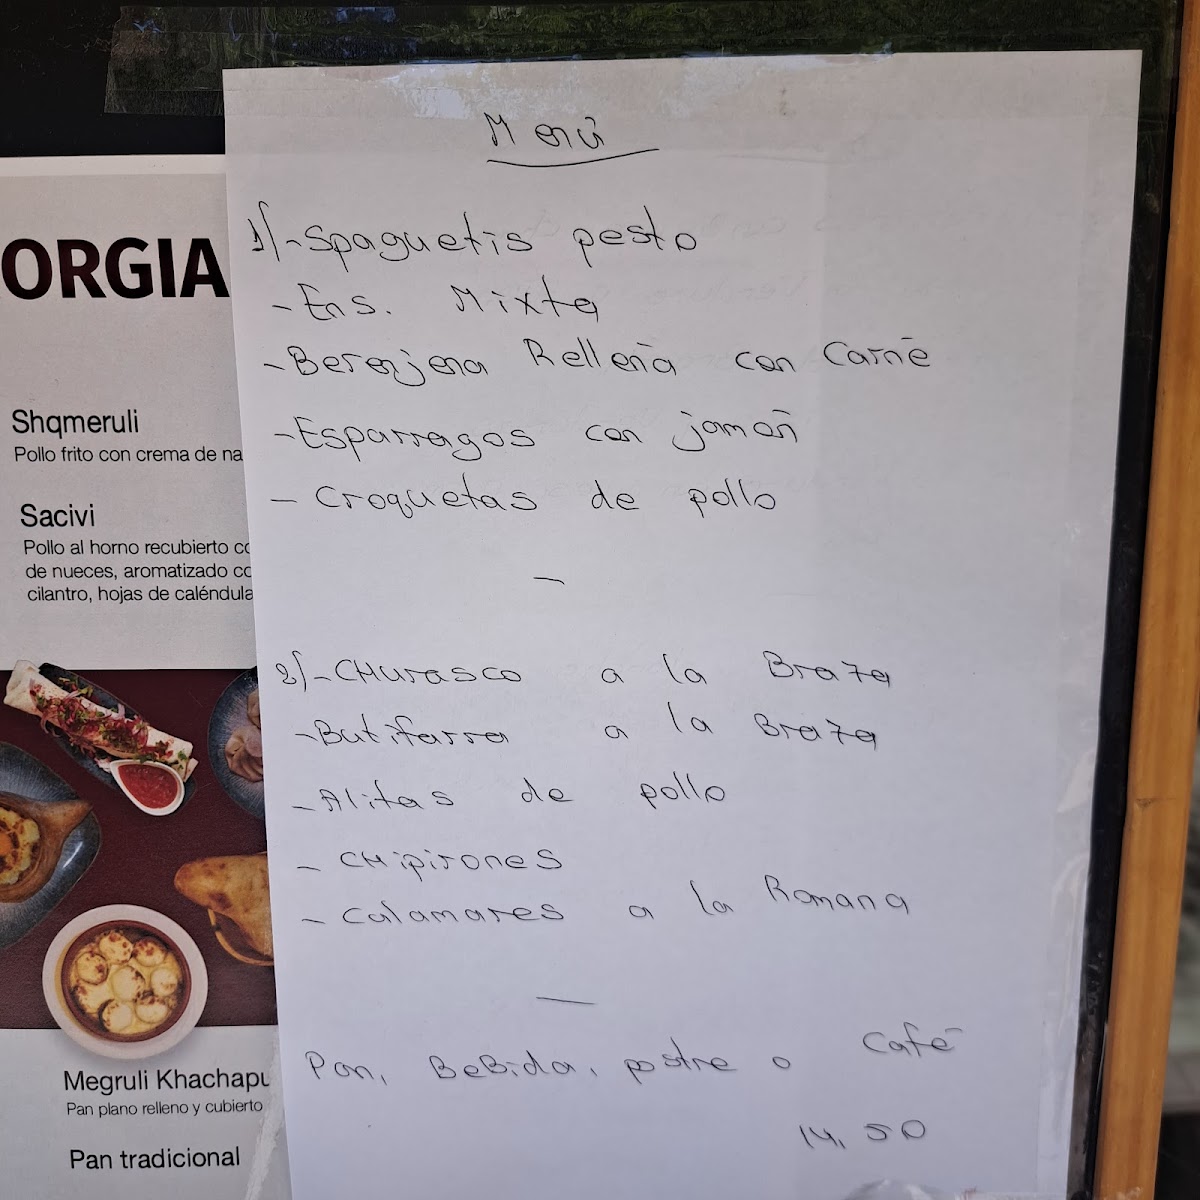 Menú
1/-Spaguetis pesto
-Ens. Mixta
-Berenjena Rellena con Carne
-Esparragos con jamon
- Croquetas de pollo
—
2/-CHurasco a la Braza
-Butifarra a la Braza
-Alitas de pollo
- CHipirones
- Calamares a la Romana
—
Pan, BeBida, postre o Café
14,50
ORGIA
Shqmeruli
Pollo frito con crema de na
Sacivi
Pollo al horno recubierto co
de nueces, aromatizado co
cilantro, hojas de caléndula
Megruli Khachapu
Pan plano relleno y cubierto
Pan tradicional